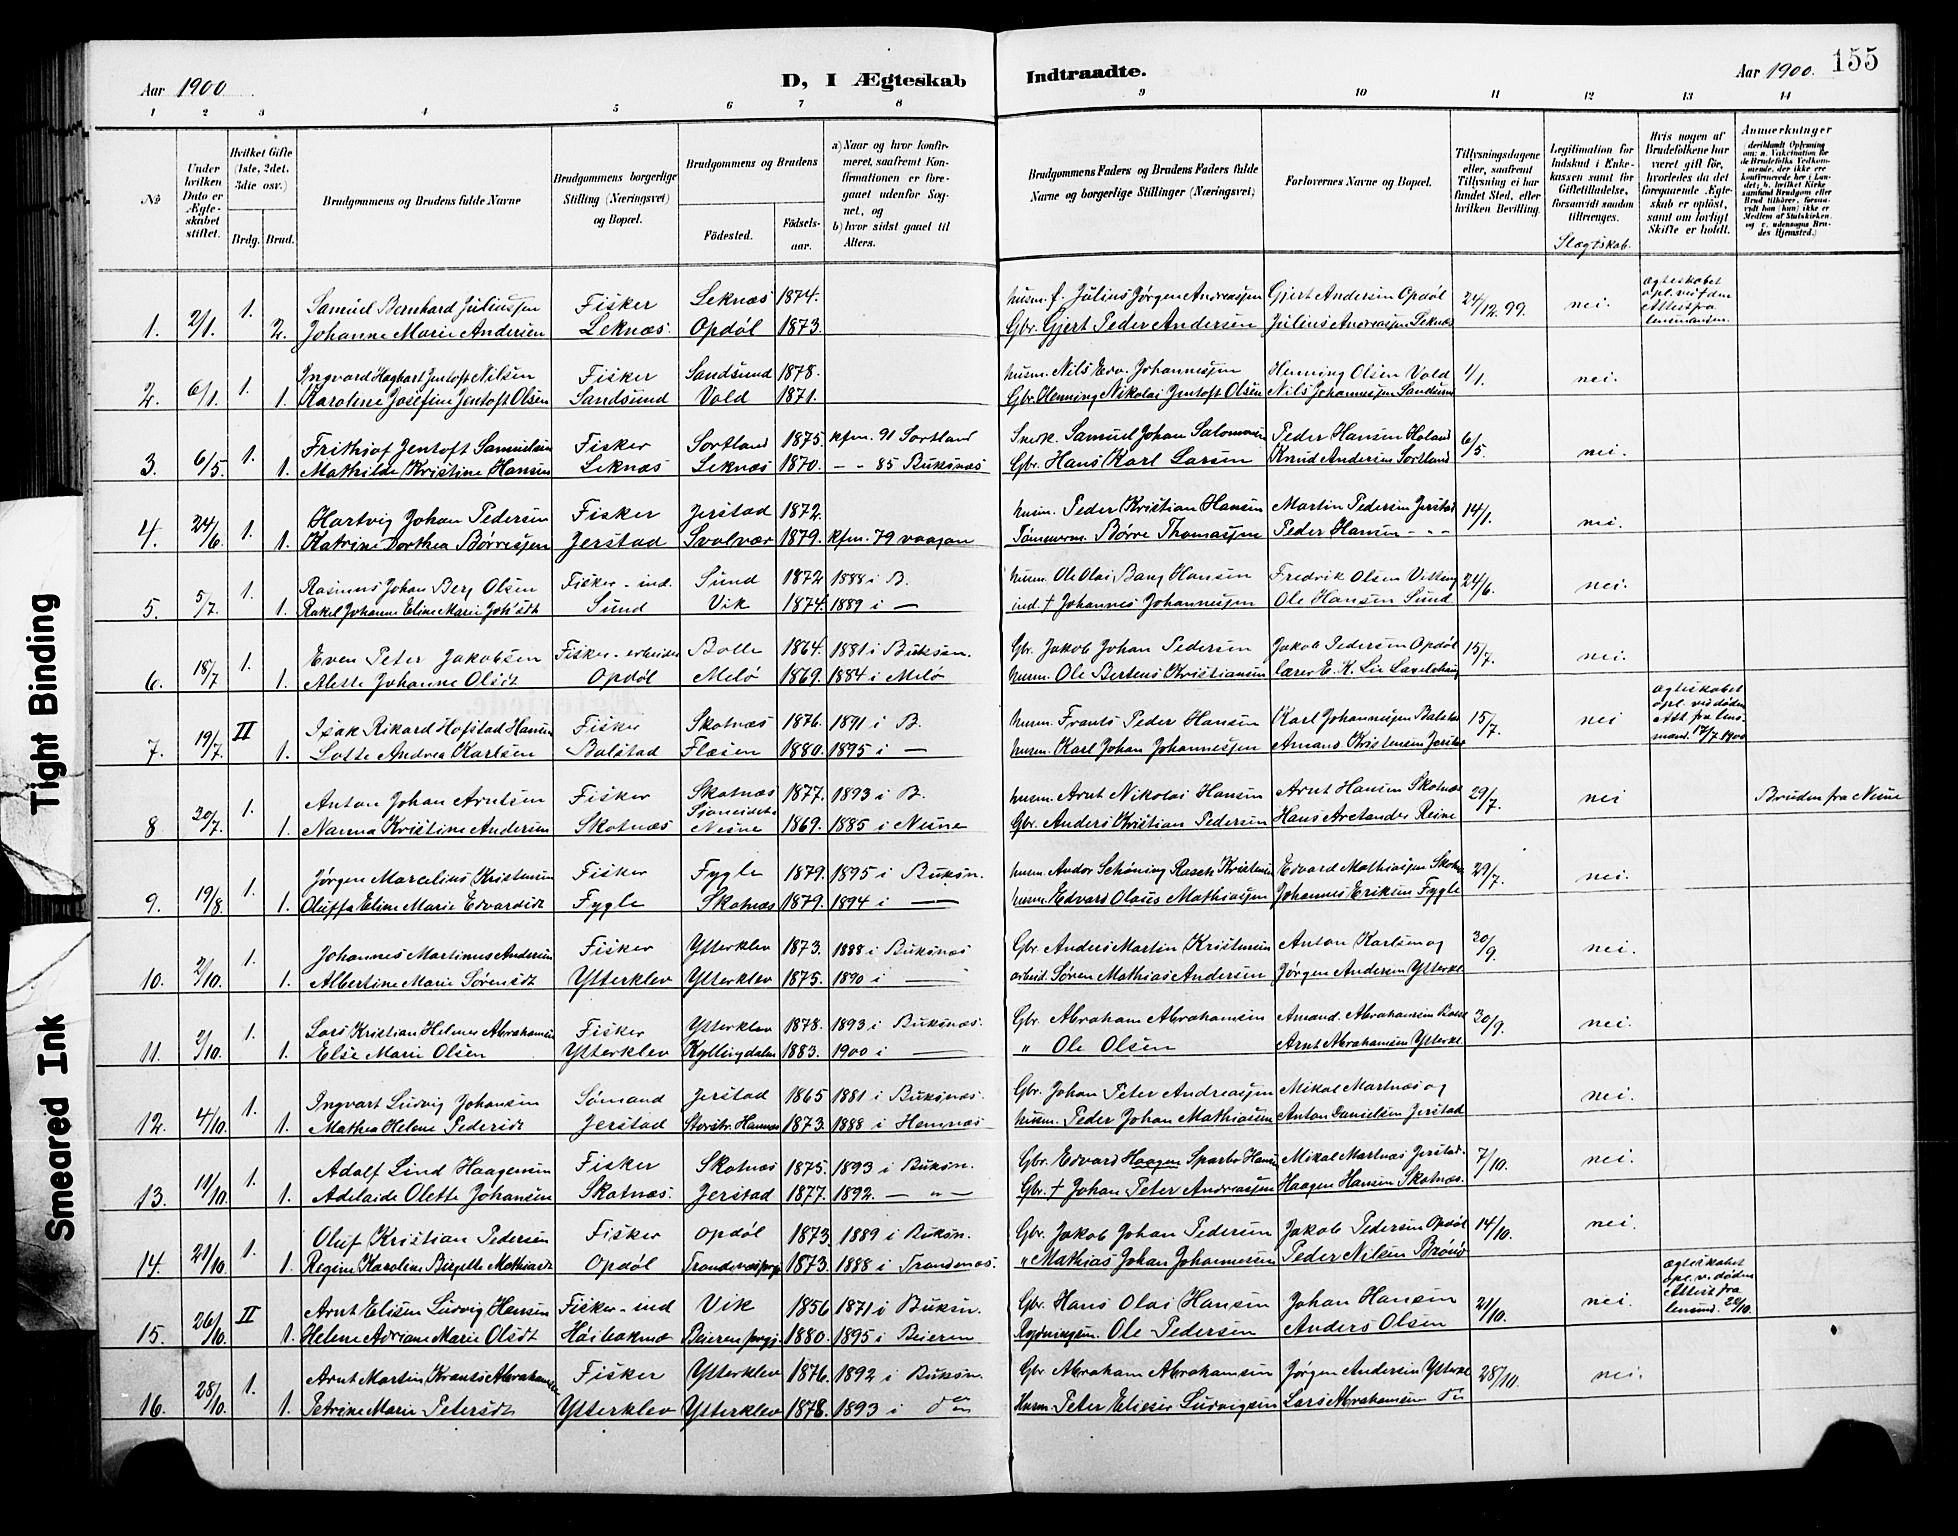 Aar 1900
D, I Ægteskab
Indtraadte.
Aar 1900. 155
1 2 3 4 5 6 7 8 9 10 11 12 13 14
No
Under hvilken Dato er Ægteskabet stiftet.
Hvilket Gifte (1ste, 2det, 3die osv.)
Brdg. Brud.
Brudgommens og Brudens fulde Navne
Brudgommens borgerlige Stilling (Næringsvei) og Bopæl.
Brudgommens og Brudens
Fødested. Fødselsaar.
a) Naar og hvor konfirmeret, saafremt Konfirmationen er foregaaet udenfor Sognet, og
b) hvor sidst gaaet til Alters.
Brudgommens Faders og Brudens Faders fulde Navne og borgerlige Stillinger (Næringsvei)
Forlovernes Navne og Bopæl.
Tillysningsdagene eller, saafremt Tillysning ei har fundet Sted, efter hvilken Bevilling.
Legitimation for Indskud i Enkekassen samt for Giftetilladelse, forsaavidt saadan tiltrænges.
Slægtskab.
Hvis nogen af Brudefolkene har været gift før, hvorledes da det foregaaende Ægteskab er opløst, samt om lovligt Skifte er holdt.
Anmerkninger
1. 2/1. 1. Samuel Bernhard Juliussen Fisker Leknæs 1874. husm. f. Julius Jørgen Andreassen Gjert Andersen Opdøl 24/12 99. nei. ægteskabet opl. ved død Attest fra lensmanden.
2. Johanne Marie Andersen Leknæs. Opdøl 1873. Gbr. Gjert Peder Andersen Julius Andreassen Leknæs
2. 6/1. 1. Ingvard Hagbart Jentoft Nilsen Fisker Sandsund 1878. husm. Nils Edv. Johannessen Henning Olsen Vold 1/1. nei.
1. Karoline Josefine Jentoft Olsen Sandsund Vold 1871. Gbr. Henning Nikolai Jentoft Olsen Nils Johannessen Sandsund
3. 6/5. 1. Frithjof Jentoft Samuelsen Fisker Sortland 1875 kfm. 91 Sortland Snedk. Samuel Johan Salomonsen Peder Hansen Holand 6/5. nei.
1. Mathilde Kristine Hansen Leknæs Leknæs 1870. – „ 85 Buksnæs Gbr. Hans Karl Larsen Knud Andersen Sortland
4. 24/6. 1. Hartvig Johan Pedersen Fisker Jerstad 1872. husm. Peder Kristian Hansen Martin Pedersen Jerstad 14/1. nei.
1. Katrine Dorthea Børresen Jerstad Svolvær 1879. kfm. 79 vaagan Tømmerm. Børre Thomassen Peder Hansen – „ –
5. 5/7. 1. Rasmus Johan Berg Olsen Fisker - ind. Sund 1872 1888 i B. husm. Ole Olai Bang Hansen Fredrik Olsen 24/6. nei.
1. Rakel Johanne Eline Marie Joh'sdt Sund Vik 1874. 1889 i — ind. † Johannes Johannessen Ole Hansen Sund
6. 18/7 1. Even Peter Jakobsen Fisker - arbeider Bolle 1864. 1881 i Buksn. Gbr. Jakob Johan Pedersen Jakob Pedersen Opdøl 15/7. nei.
1. Alette Johanne Olsdt Opdøl Melø 1869. 1884 i Melø husm. Ole Bertens Kristiansen lærer E. K. Lie
7. 19/7. II Isak Rikard Hofstad Hansen Fisker Skotnæs 1876. 1891 i B. husm. Frants Peder Hansen Karl Johannessen Balstad 15/7. nei ægteskabet opl. ved døden Att. fra lensmand. 17/7 1900
1. Lotte Andrea Karlsen Balstad Flæsen 1880. 1895 i — husm. Karl Johan Johannessen Amand. Kristensen Jerstad
8 20/7. 1. Anton Johan Arntsen Fisker Skotnæs 1877. 1893 i B. husm. Arnt Nikolai Hansen Arnt Hansen Skotnæs 29/7. nei Bruden fra Nesne
1. Nanna Kristine Andersen Skotnæs Nesne 1869. 1885 i Nesne Gbr. Anders Kristian Pedersen Hans Arctander Reine
9. 19/8. 1. Jørgen Marcelius Kristensen Fisker Fygle 1879. 1895 i Buksn. husm. Andor Schøning Rasch Kristensen Edvard Mathiassen Skotnæs 29/7. nei.
1. Oluffa Eline Marie Edvardsdt Fygle Skotnæs 1879. 1894 i — husm. Edvard Olaus Mathiassen Johannes Eriksen Fygle
10. 2/10. 1. Johannes Martinus Andersen Fisker Ytterklev 1873. 1888 i Buksnæs Gbr. Anders Martin Kristensen Anton Karlsen og 30/9. nei.
1. Albertine Marie Sørensdt Ytterklev Ytterklev 1875. 1890 i — arbeid. Søren Mathias Andersen Jørgen Andersen Ytterkl.
11. 2/10. 1. Lars Kristian Helmer Abrahamsen Fisker Ytterklev 1878. 1893 i Buksnæs. Gbr. Abraham Abrahamsen Amand. Abrahamsen 30/9. nei.
1. Else Marie Olsen Ytterklev Kyllingdalen 1883. 1900 i — „ Ole Olsen Arnt Abrahamsen Ytterkl.
12. 4/10. 1. Ingvart Ludvig Johansen Sømand Jerstad 1865 1881 i Buksnæs. Gbr. Johan Peter Andreassen Mikal Martnæs og nei.
1. Mathea Helene Pedersdt Jerstad Storstr. Hamnes 1873. 1888 i Hemnæs husm. Peder Johan Mathiasen Anton Danielsen Jerstad
13. 11/10. 1. Adolf Lind Haagensen Fisker Skotnæs 1875. 1893 i Buksn. Gbr. Edvard Haagen Sparbo Hansen Mikal Martnæs Jerstad. 7/10. nei.
1. Adelaide Olette Johansen Skotnæs. Jerstad 1877. 1892. – „ – Gbr. † Johan Peter Andreassen Haagen Hansen Skotnæs.
14. 21/10. 1. Oluf Kristian Pedersen Fisker Opdøl 1873. 1889 i Buksn. Gbr. Jakob Johan Pedersen Jakob Pedersen Opdøl 14/10. nei.
1. Regine Karoline Birgitte Mathiasdt Opdøl Trondenæs prgj. 1873. 1888 i Trondenæs. „ Mathias Johan Johannessen Peder Nilsen
15. 26/10. II Arnt Elisen Ludvig Hansen Fisker - ind Vik 1856 1871 i Buksn. Gbr. Hans Olai Hansen Johan Hansen 21/10. nei. ægteskabet opl. v. døden Attest fra lensmd. 22/10.
1. Helene Adriane Marie Olsdt Beieren prgj. 1880. 1895 i Beieren Rydningsm. Ole Pedersen Anders Olsen
16. 28/10. 1. Arnt Martin Krants Abrahamsen Fisker Ytterklev 1876. 1892 i Buksn. Gbr. Abraham Abrahamsen Jørgen Andersen Ytterkl 28/10. nei.
1. Petrine Marie Petersdt Ytterklev Ytterklev 1878. 1893 i do Husm. Peter Elieser Ludvigsen Lars Abrahamsen do
Tight Binding
Smeared Ink